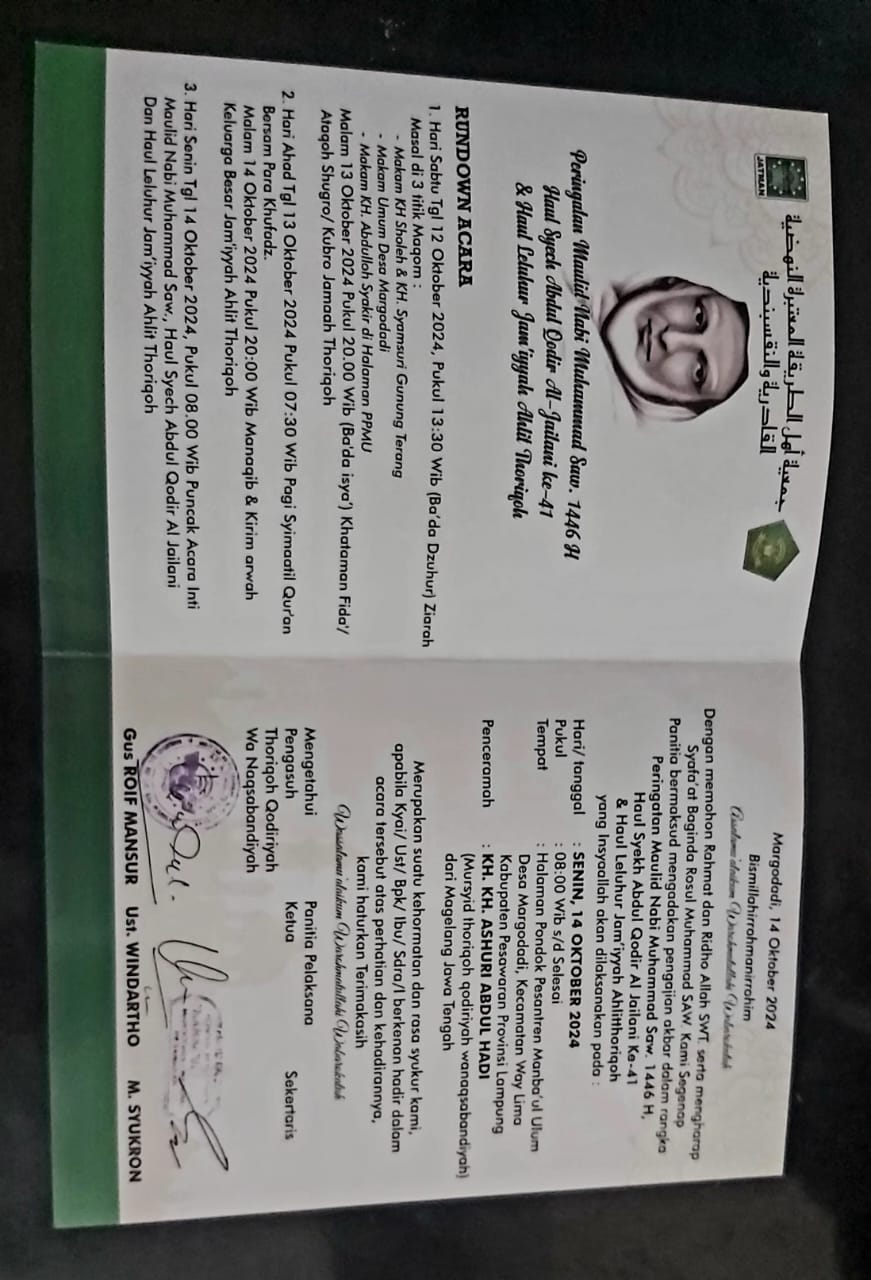 JATMAN
جمعية أهل الطريقة المعتبرة النهضية
القادرية والنقسبندية
Peringatan Maulid Nabi Muhammad Saw. 1446 H
Haul Syech Abdul Qodir Al-Jailani ke-41
& Haul Leluhur Jam'iyyah Ahlit Thoriqoh
RUNDOWN ACARA
1. Hari Sabtu Tgl 12 Oktober 2024, Pukul 13:30 Wib (Ba'da Dzuhur) Ziarah
Masal di 3 titik Maqom :
- Makam KH Sholeh & KH. Syamsuri Gunung Terang
- Makam Umum Desa Margodadi
- Makam KH. Abdulloh Syakir di Halaman PPMU
Malam 13 Oktober 2024 Pukul 20.00 Wib (Ba'da isya') Khataman Fida'/
Ataqoh Shugro/ Kubro Jamaah Thoriqoh
2. Hari Ahad Tgl 13 Oktober 2024 Pukul 07:30 Wib Pagi Syimaatil Qur'an
Bersam Para Khufadz.
Malam 14 Oktober 2024 Pukul 20:00 Wib Manaqib & Kirim arwah
Keluarga Besar Jam'iyyah Ahlit Thoriqoh
3. Hari Senin Tgl 14 Oktober 2024, Pukul 08.00 Wib Puncak Acara Inti
Maulid Nabi Muhammad Saw., Haul Syech Abdul Qodir Al Jailani
Dan Haul Leluhur Jam'iyyah Ahlit Thoriqoh
Margodadi, 14 Oktober 2024
Bismillahirrohmanirrohim
Assalamu'alaikum Warohmatullahi Wabarokatuh
Dengan memohon Rahmat dan Ridho Allah SWT. serta mengharap
Syafa'at Baginda Rosul Muhammad SAW. Kami Segenap
Panitia bermaksud mengadakan pengajian akbar dalam rangka
Peringatan Maulid Nabi Muhammad Saw. 1446 H,
Haul Syekh Abdul Qodir Al Jailani Ke-41
& Haul Leluhur Jam'iyyah Ahlitthoriqoh
yang Insyaallah akan dilaksanakan pada :
Hari/ tanggal : SENIN, 14 OKTOBER 2024
Pukul : 08:00 Wib s/d Selesai
Tempat : Halaman Pondok Pesantren Manba'ul Ulum
Desa Margodadi, Kecamatan Way Lima
Kabupaten Pesawaran Provinsi Lampung
Penceramah : KH. KH. ASHURI ABDUL HADI
(Mursyid thoriqoh qodiriyah wanaqsabandiyah)
dari Magelang Jawa Tengah
Merupakan suatu kehormatan dan rasa syukur kami,
apabila Kyai/ Ust/ Bpk/ Ibu/ Sdra/I berkenan hadir dalam
acara tersebut atas perhatian dan kehadirannya,
kami haturkan Terimakasih
Wassalamu'alaikum Warohmatullahi Wabarokatuh
Mengetahui Panitia Pelaksana
Pengasuh Ketua Sekertaris
Thoriqoh Qodiriyah
Wa Naqsabandiyah
Gus ROIF MANSUR Ust. WINDARTHO M. SYUKRON